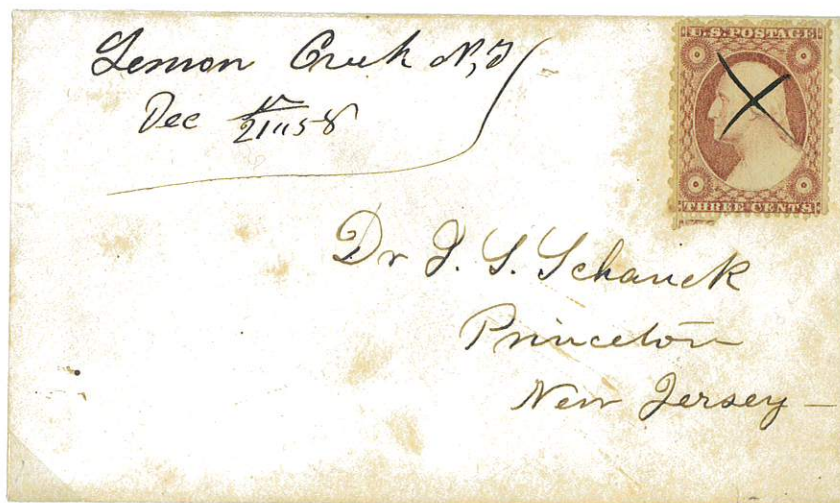 Lemon Creek N,Y
Dec 21st 58
U.S. POSTAGE
THREE CENTS
Dr J. S. Schanck
Princeton
New Jersey –